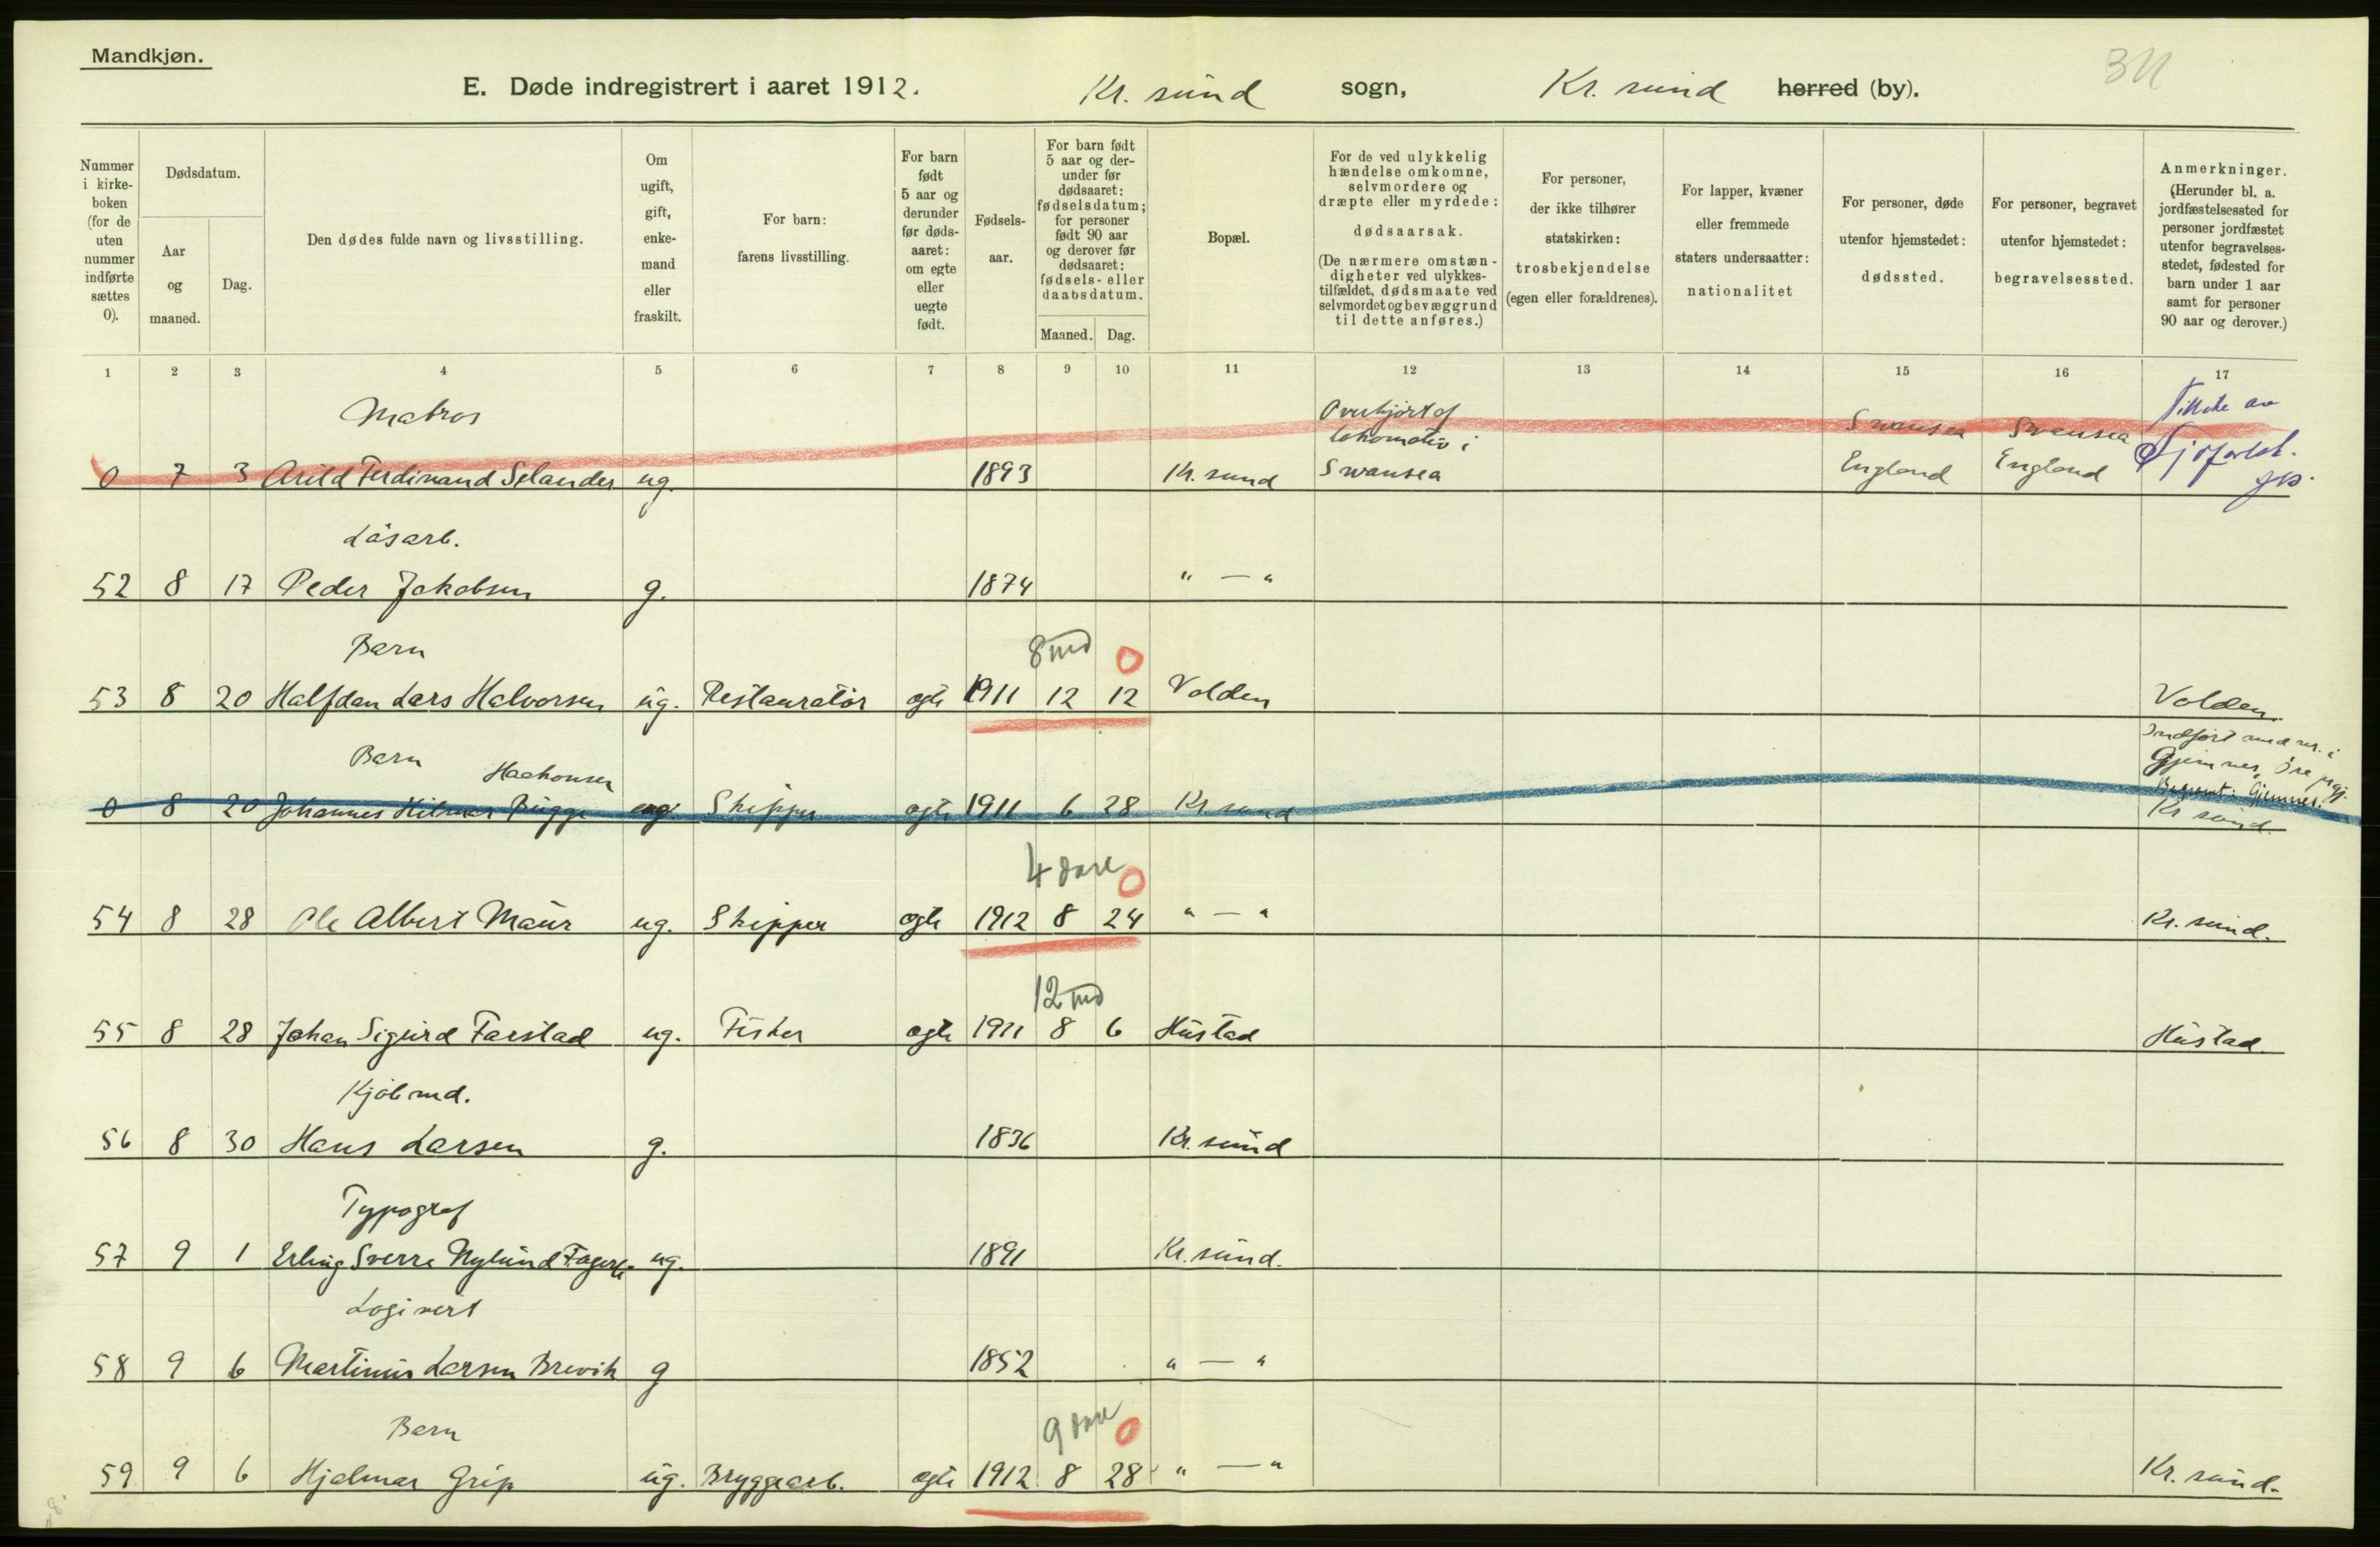 Mandkjøn.
E. Døde indregistrert i aaret 1912. Kr. sund sogn, Kr. sund herred (by).
Nummer i kirkeboken (for de uten nummer indførte sættes 0).
Dødsdatum.
Aar og maaned.
Dag.
Den dødes fulde navn og livsstilling.
Om ugift, gift, enkemand eller fraskilt.
For barn: farens livsstilling.
For barn født 5 aar og derunder før dødsaaret: om egte eller uegte født.
Fødselsaar.
For barn født 5 aar og derunder før dødsaaret: fødselsdatum; for personer født 90 aar og derover før dødsaaret: fødsels- eller daabsdatum.
Maaned. Dag.
Bopæl.
For de ved ulykkelig hændelse omkomne, selvmordere og dræpte eller myrdede: dødsaarsak. (De nærmere omstændigheter ved ulykkestilfældet, dødsmaate ved selvmordet og bevæggrund til dette anføres.)
For personer, der ikke tilhører statskirken: trosbekjendelse (egen eller forældrenes).
For lapper, kvæner eller fremmede staters undersaatter: nationalitet
For personer, døde utenfor hjemstedet: dødssted.
For personer, begravet utenfor hjemstedet: begravelsessted.
Anmerkninger. (Herunder bl. a. jordfæstelsessted for personer jordfæstet utenfor begravelsesstedet, fødested for barn under 1 aar samt for personer 90 aar og derover.)
1 2 3 4 5 6 7 8 9 10 11 12 13 14 15 16 17
Matros
Overkjørt af
lokomotiv i
0 7 3 Arild Ferdinand Selander ug. 1893 Kr. sund Swansea
Swansea England
Swansea England
Låsarb.
52 8 17 Peder Jakobsen g. 1874 " — "
Barn 8 md 0
53 8 20 Halfdan Lars Halvorsen ug. Restauratør egte 1911 12 12 Volden Volden.
Indført med nr. i
Barn Haakonsen Gjemnes, Øre prgj.
0 8 20 Johannes Hilmar Bugge ug. Skipper egte 1911 6 28 Kr. sund
Gjemnes.
Kr sund.
4 dage 0
54 8 28 Ole Albert Maur ug. Skipper egte 1912 8 24 " — " Kr. sund.
12 md
55 8 28 Johan Sigurd Farstad ug. Fisker egte 1911 8 6 Hustad Hustad
Kjøbmd.
56 8 30 Hans Larsen g. 1836 Kr. sund
Typograf
57 9 1 Erling Sverre Nylund ug. 1891 Kr. sund.
Logivert
58 9 6 Martinus Larsen Brevik g 1852 " — "
Barn 9 dage 0
59 9 6 Hjalmar Grip ug. Bryggearb. egte 1912 8 28 " — " Kr. sund.